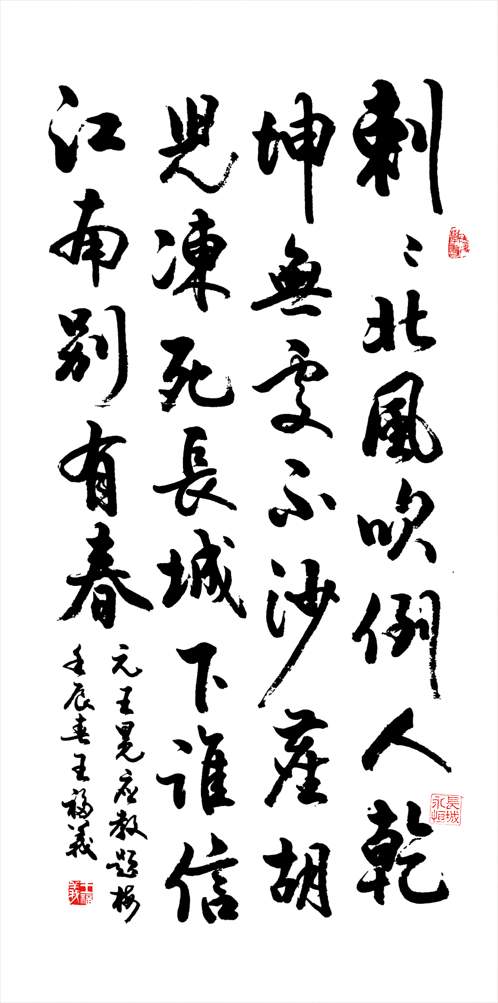 刺〻北風吹倒人乾
坤無處不沙塵胡
兒凍死長城下誰信
江南別有春
元王冕应教題梅
壬辰春王福義
長城